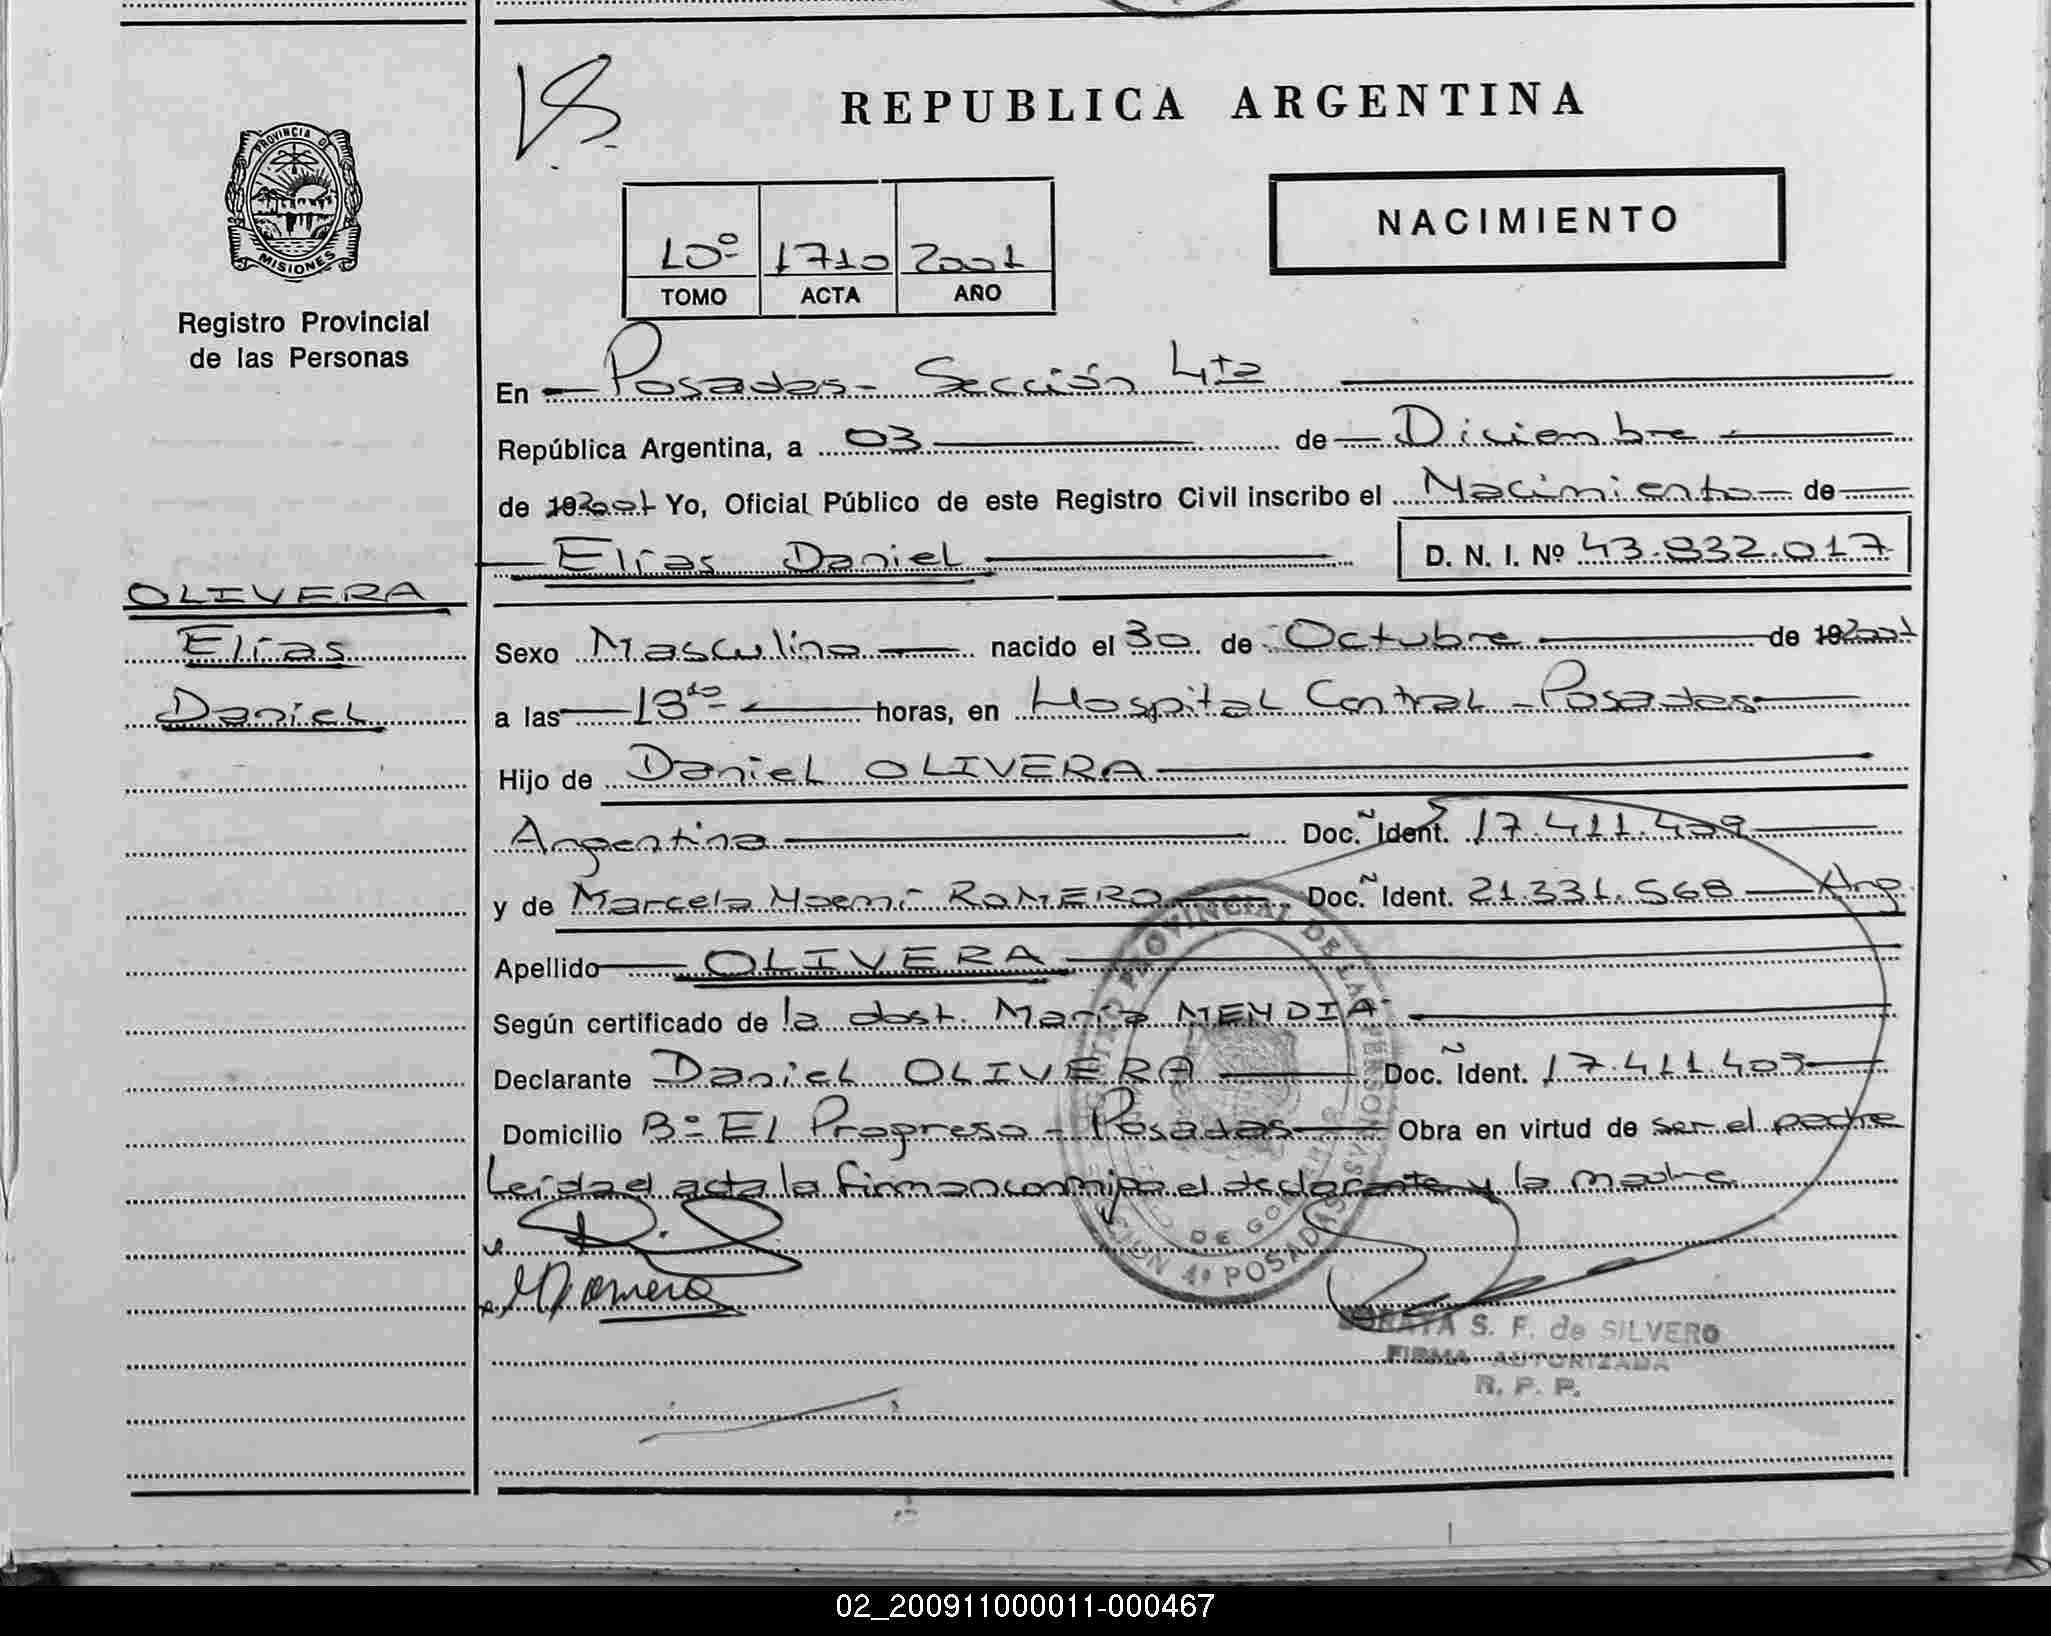 REPUBLICA ARGENTINA
PROVINCIA DE
MISIONES
Registro Provincial
de las Personas
NACIMIENTO
10º 1710 2001
TOMO ACTA AÑO
En Posadas - Sección 4ta
República Argentina, a 03 de Diciembre
de 2001 Yo, Oficial Público de este Registro Civil inscribo el Nacimiento de
Elías Daniel D. N. I. Nº 43.832.017
OLIVERA
Elías
Daniel
Sexo Masculino nacido el 30 de Octubre de 2001
a las horas, en Hospital Central - Posadas
Hijo de Daniel OLIVERA
Argentina Doc. Ident. 17.411.409
y de Marcela Noemí ROMERO Doc. Ident. 21.331.568 Arg.
Apellido OLIVERA
Según certificado de la obst. María MENDIA
Declarante Daniel OLIVERA Doc. Ident. 17.411.409
Domicilio Bº El Progreso - Posadas Obra en virtud de ser el padre
Leída el acta la firman conmigo el declarante y la madre
MRomero
PROVINCIAL DE LAS PERSONAS
SECCION 4ª POSADAS
S. F. de SILVERO
FIRMA AUTORIZADA
R. P. P.
02_200911000011-000467